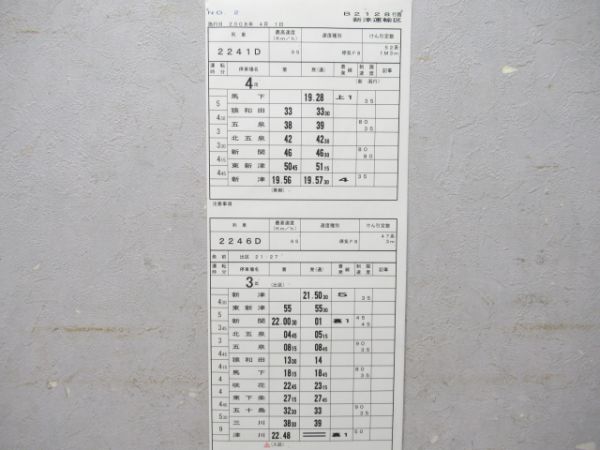 NO. 2
B2128行路
施行日 2008年 4月 1日
新津運輸区
列車 最高速度(Km/h) 速度種別 けん引定数
2241D 95 停気F8
運転時分 停車場名 着 発(通) 着発線 制限速度 記事
4両
馬下 19.28 上1
5 35
猿和田 33 33 30
4 30
五泉 38 39 80
3 35
北五泉 42 42 30
3 30
新関 46 46 30 80
4 15 80
東新津 50 45 51 15
4 45
新津 19.56 19.57 30 4 35
注意事項
列車 最高速度(Km/h) 速度種別 けん引定数
2246D 95 停気F8
出区 21:27
運転時分 停車場名 着 発(通) 着発線 制限速度 記事
3両 (出区)
新津 21.50 30 5
4 30 35
東新津 55 55 30
新関 22.00 30 01 裏1 45
3 45 45
北五泉 04 45 05 15
3
五泉 08 15 08 45 80
35
猿和田 13 00 14
馬下 18 15 18 45 80
4 35
咲花 22 45 23 15
4
東下条 27 15 27 45
五十島 32 30 33 90
35
三川 38 30 39
9
津川 22.48 裏1 50